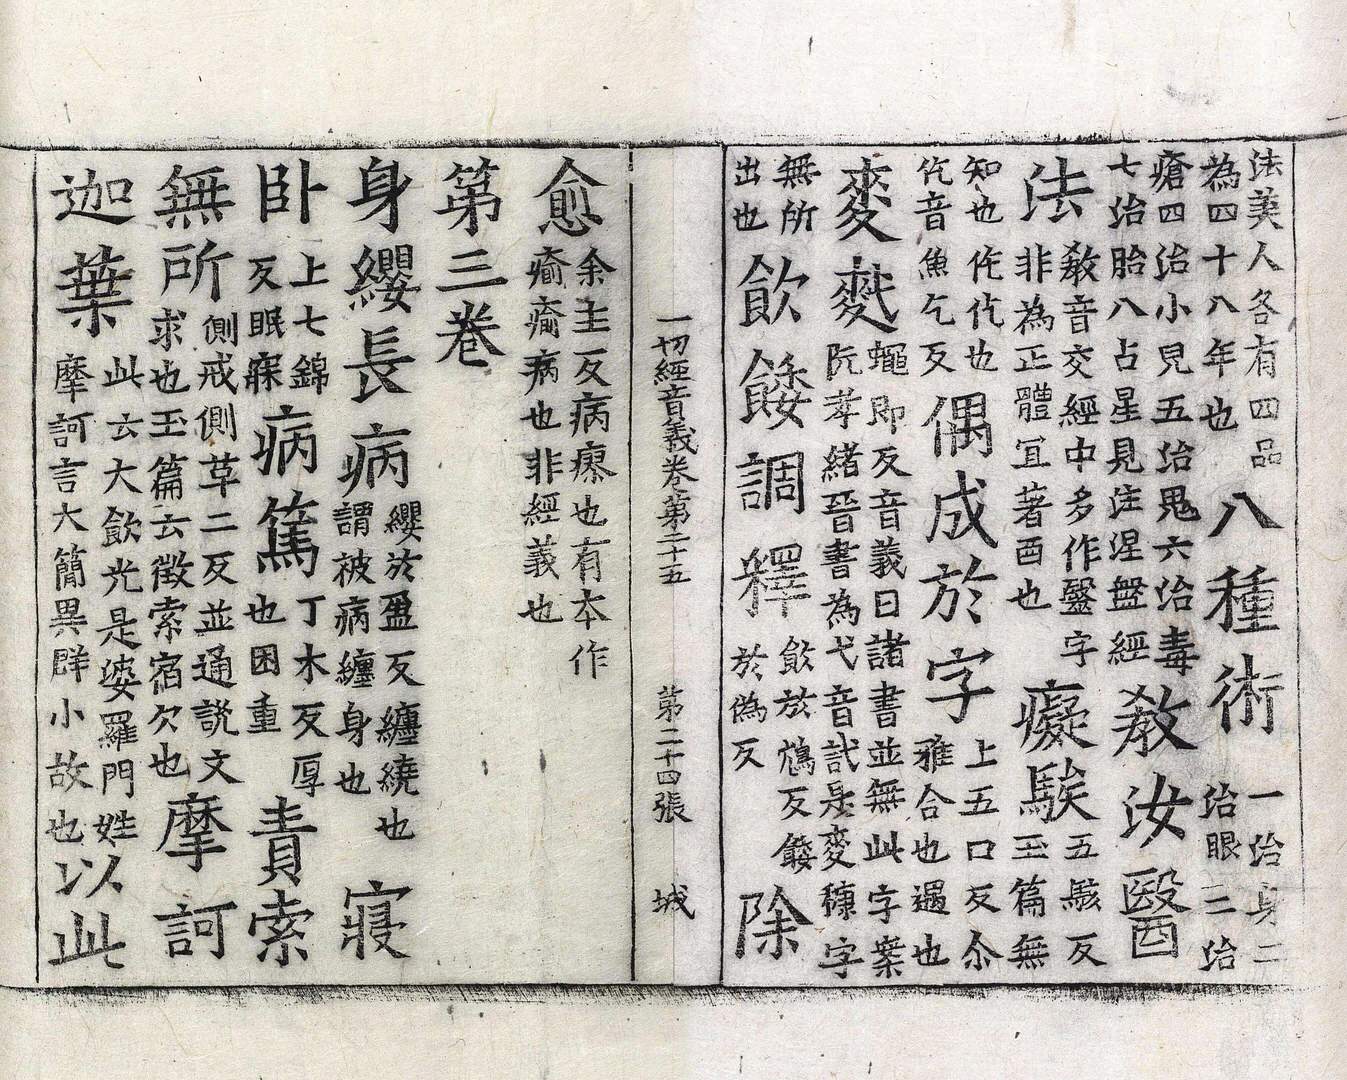 法美人各有四品
為四十八年也
八種術
一治身二
治眼三治
瘡四治小兒五治鬼六治毒
七治胎八占星見注涅盤經
教汝醫
法
敎音交經中多作毉字
非為正體宜著酉也
癡騃
五駭反
玉篇無
知也仡仡也
仡音魚乞反
偶成於字
上五口反尒
雅合也遇也
麥
蠅即反音義曰諸書並無此字案
阮孝緒晉書為弋音弍是麥糠字
無所
出也
飲餧調釋
飲於鴆反餧
於偽反
除
一切經音義卷第二十五 第二十四張 城
愈
余主反病瘳也有本作
瘉瘉病也非經義也
第三卷
身纓長病
纓於盈反纏繞也
謂被病纏身也
寢
臥
上七錦
反眠寐
病篤
丁木反厚
也困重
責索
無所
側戒側草二反並通説文
求也玉篇云徵索宿欠也
摩訶
迦葉
此云大飲光是婆羅門姓
摩訶言大簡異群小故也
以此